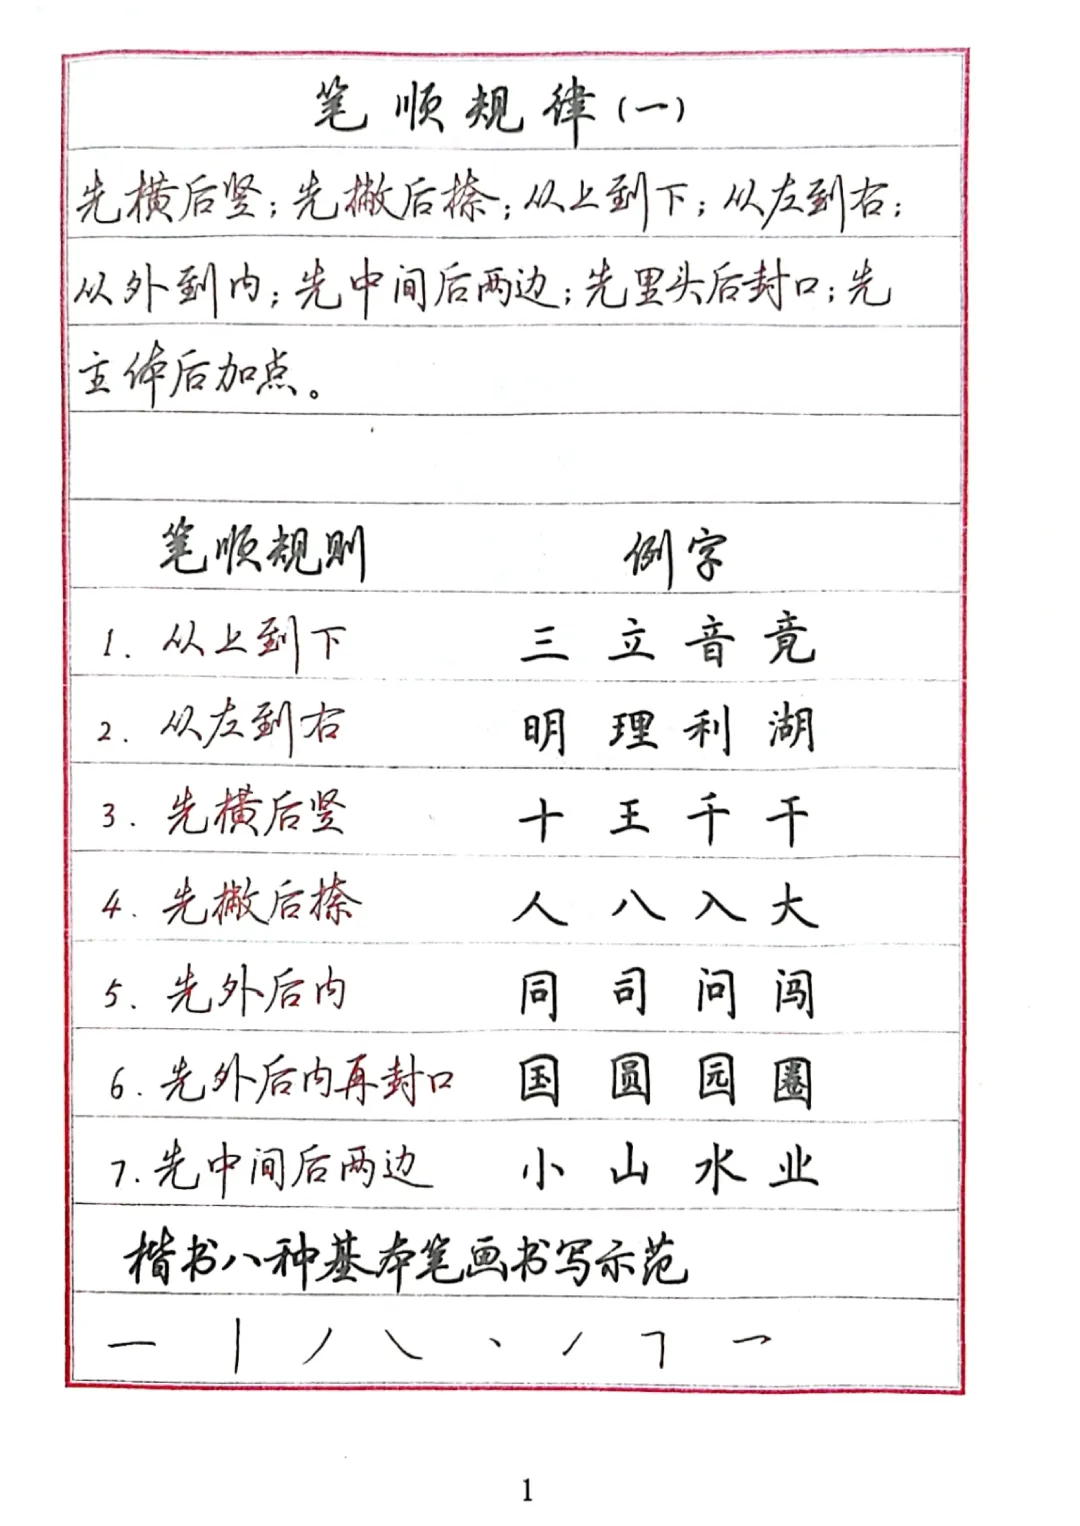 笔顺规律(一)
先横后竖;先撇后捺;从上到下;从左到右;
从外到内;先中间后两边;先里头后封口;先
主体后加点。
笔顺规则 例字
1. 从上到下 三 立 音 竟
2. 从左到右 明 理 利 湖
3. 先横后竖 十 王 千 干
4. 先撇后捺 人 八 入 大
5. 先外后内 同 司 问 闯
6. 先外后内再封口 国 圆 园 圈
7. 先中间后两边 小 山 水 业
楷书八种基本笔画书写示范
一 丨 丿 ㇏ 丶 ㇀ ㇕ 乛
1